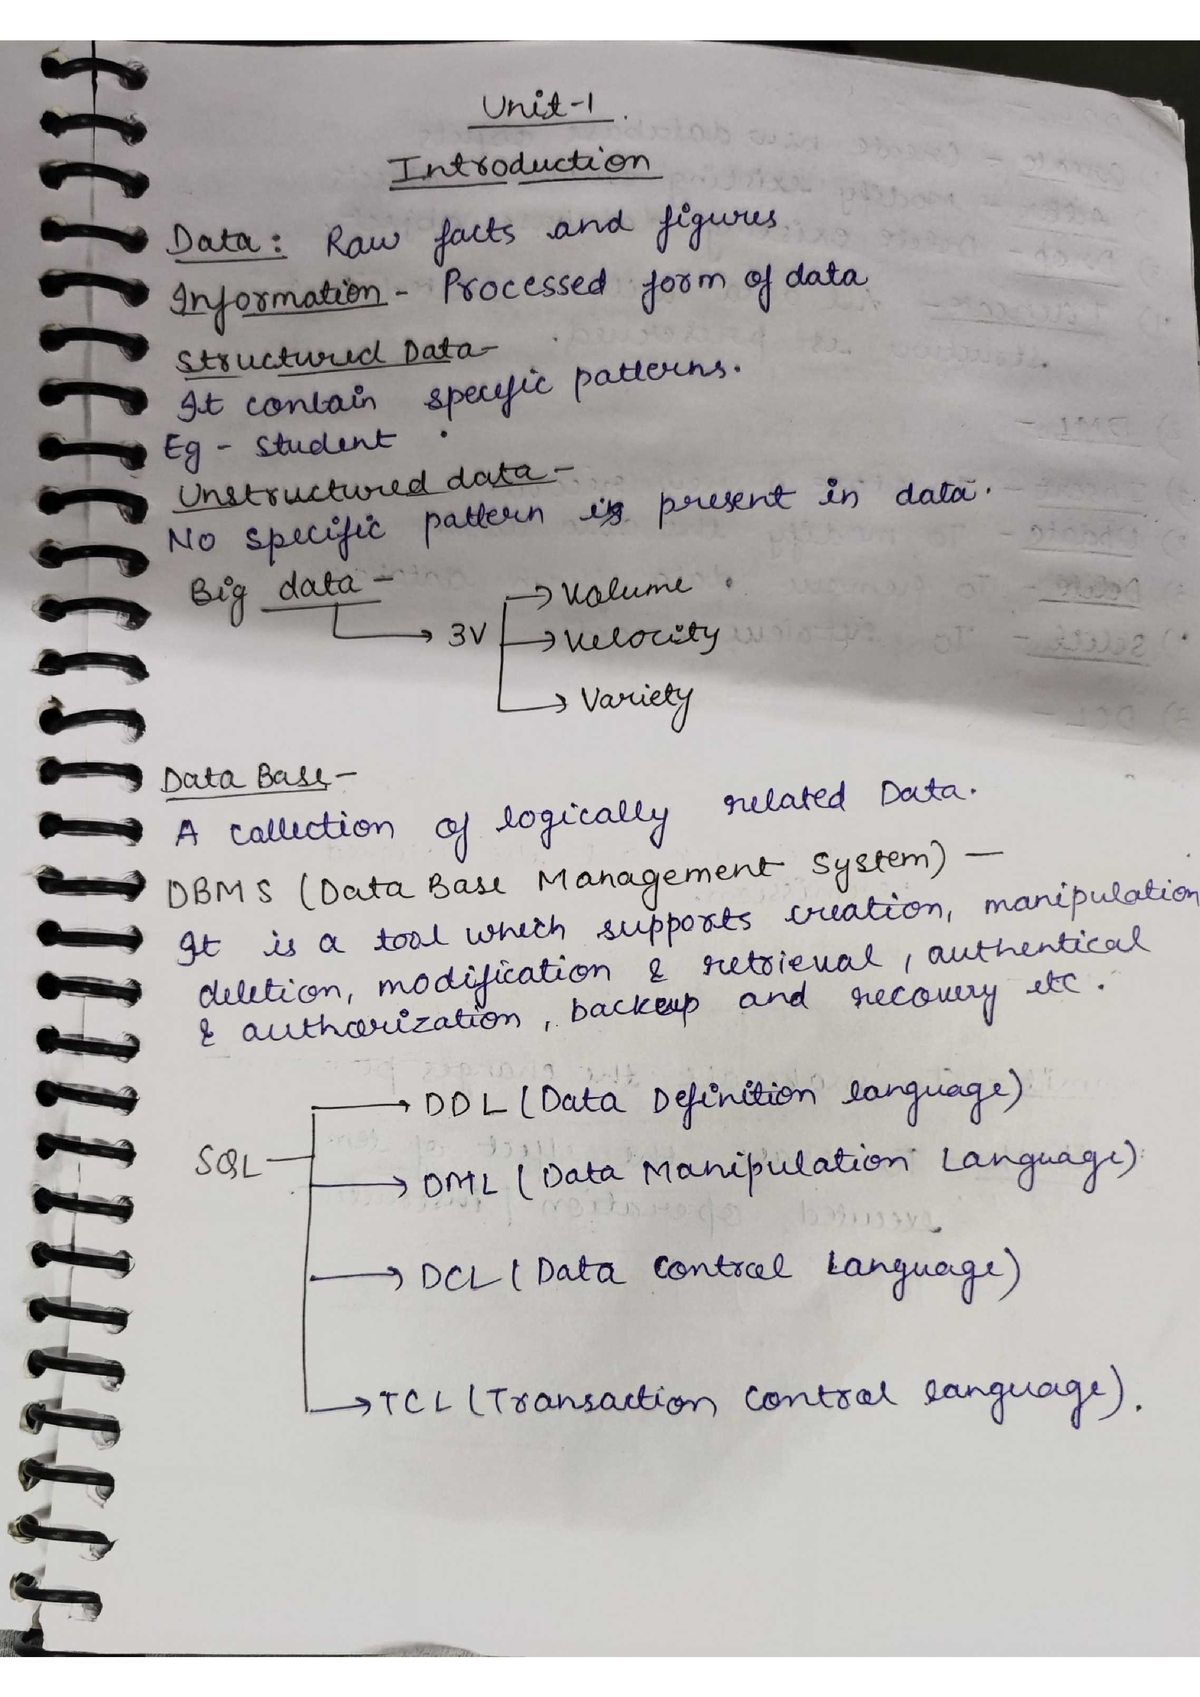 Unit-1.
Introduction
Data: Raw facts and figures
Information - Processed form of data
Structured Data-
It contain specific patterns.
Eg - Student
Unstructured data-
No specific pattern is present in data.
Big data - → 3V → Volume
→ Velocity
→ Variety
Data Base-
A collection of logically related Data.
DBMS (Data Base Management System) —
It is a tool which supports creation, manipulation
deletion, modification & retrieval, authentical
& authorization, backup and recovery etc.
→ DDL (Data Definition language)
SQL → DML (Data Manipulation Language)
→ DCL (Data Control Language)
→ TCL (Transaction Control language).